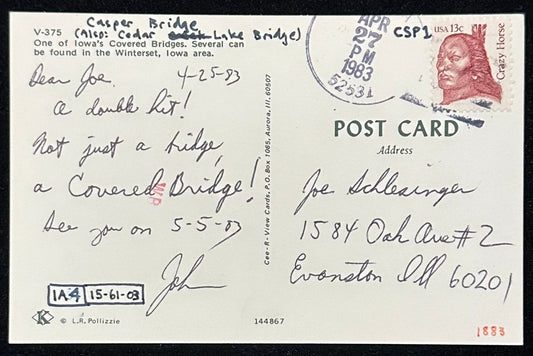 Casper Bridge
V-375 (Also: Cedar Lake Bridge)
One of Iowa's Covered Bridges. Several can
be found in the Winterset, Iowa area.
CSP1
APR
27
PM
1983
52531
USA 13c
Crazy Horse
Dear Joe, 4-25-83
A double hit!
Not just a bridge,
a Covered Bridge!
See you on 5-5-83
John
IA-4 15-61-03
K © L.R. Pollizzie
Cee-R-View Cards, P.O. Box 1065, Aurora, Ill. 60507
144867
POST CARD
Address
Joe Schlesinger
1584 Oak Ave #2
Evanston Ill 60201
1883